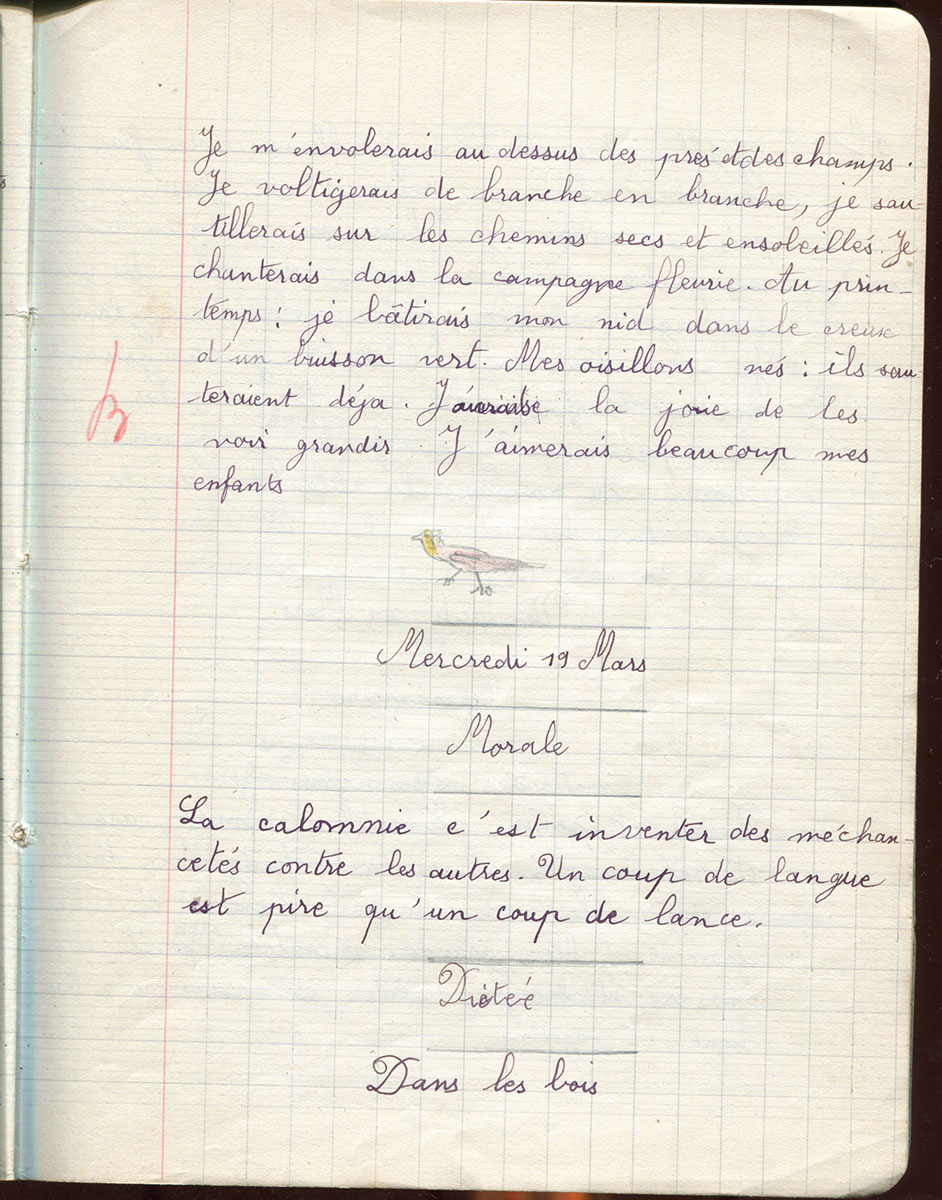 Je m'envolerais au dessus des prés et des champs.
Je voltigerais de branche en branche, je sau-
tillerais sur les chemins secs et ensoleillés. Je
chanterais dans la campagne fleurie. Au prin-
temps ; je bâtirais mon nid dans le creux
d'un buisson vert. Mes oisillons nés : ils sau
teraient déja. J'aurais la joie de les
voir grandir. J'aimerais beaucoup mes
enfants
B
Mercredi 19 Mars
Morale
La calomnie c'est inventer des méchan-
cetés contre les autres. Un coup de langue
est pire qu'un coup de lance.
Dictée
Dans les bois